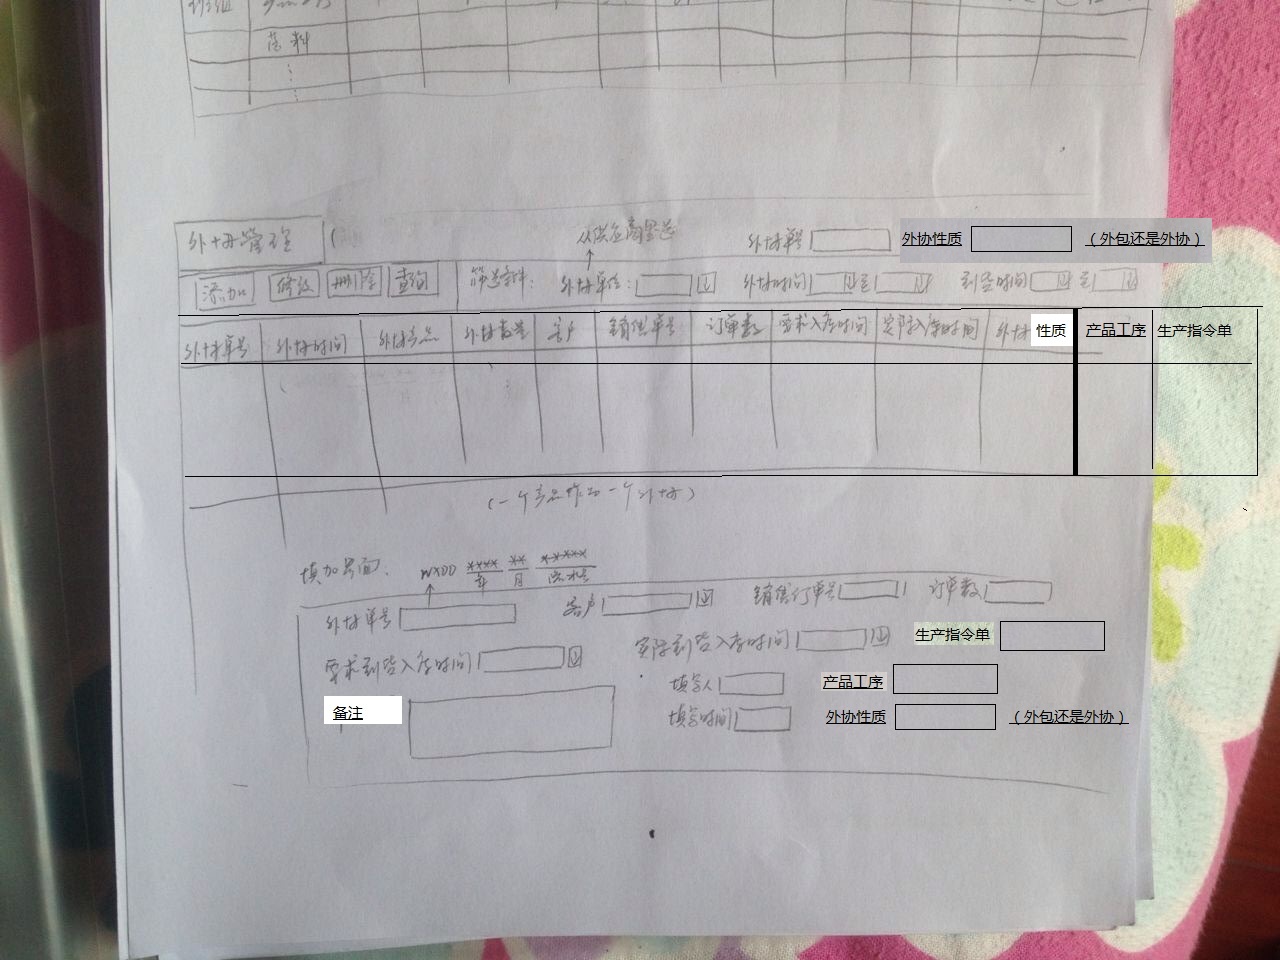 班组
落料
外协管理
从供应商里选
外协单号 外协性质 （外包还是外协）
添加 修改 删除 查询 筛选条件: 外协单位: 外协时间 至 到货时间 至
外协单号 外协时间 外协产品 外协数量 客户 销售单号 订单数 要求入库时间 实际入库时间 外协 性质 产品工序 生产指令单
(一个产品作为一个外协)
填加界面. WXDD **** ** *****
年 月 流水号
外协单号 客户 销售订单号 订单数
要求到货入库时间 实际到货入库时间 生产指令单
填写人 产品工序
备注 填写时间 外协性质 （外包还是外协）